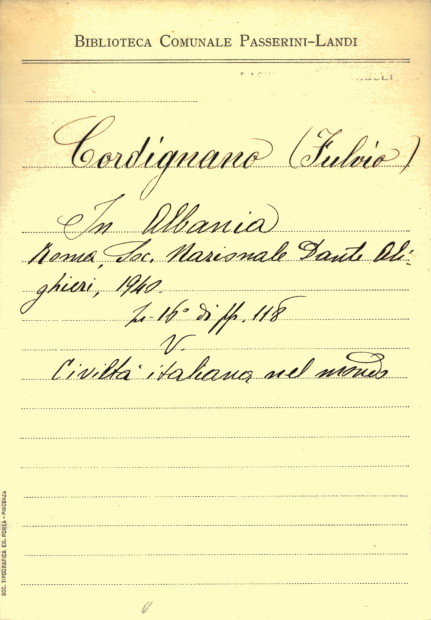 BIBLIOTECA COMUNALE PASSERINI-LANDI
Cordignano (Fulvio)
In Albania
Roma, Soc. Nazionale Dante Ali-
ghieri, 1940.
in-16° di pp. 118
V.
Civiltà italiana nel mondo
SOC. TIPOGRAFICA ED. PORTA - PIACENZA